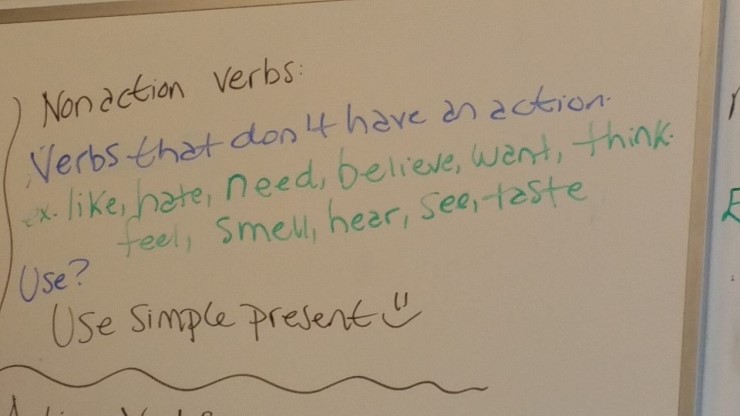 Nonaction verbs:
Verbs that don't have an action.
ex. like, hate, need, believe, want, think.
feel, smell, hear, see, taste
Use?
Use simple present